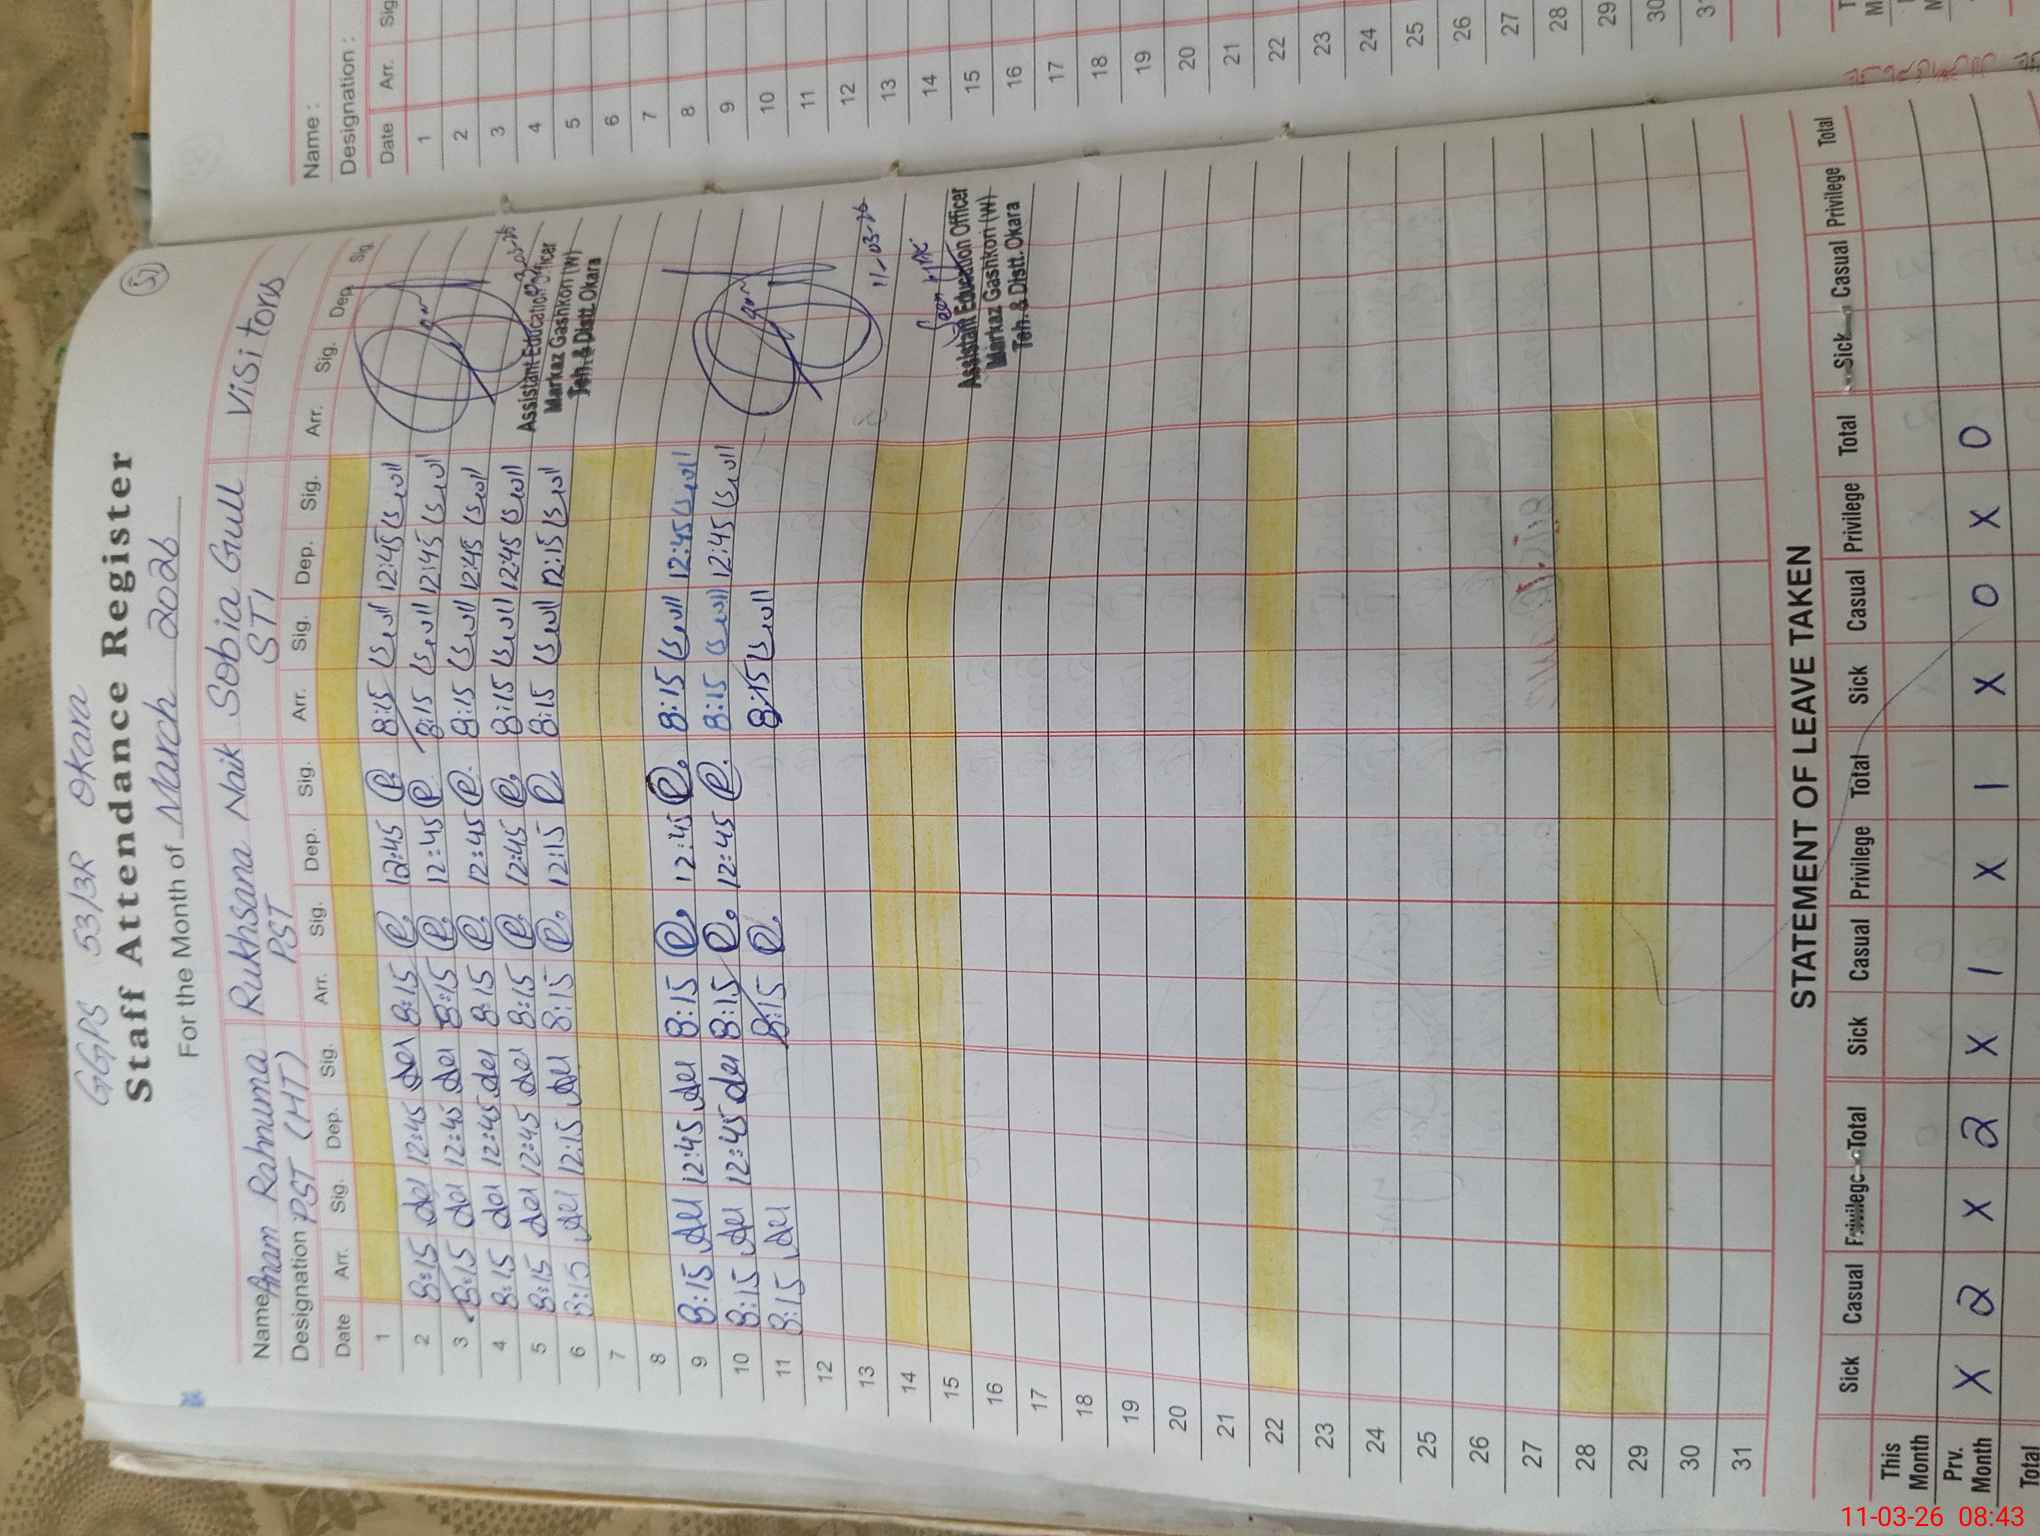 51
GGPS 53/3R Okara
Staff Attendance Register
For the Month of March 2026
Name Anam Rahnuma Rukhsana Naik Sobia Gull Visitors
Designation PST (HT) PST STI
Date Arr. Sig. Dep. Sig. Arr. Sig. Dep. Sig. Arr. Sig. Dep. Sig. Arr. Sig. Dep. Sig.
1
2 8:15 12:45 8:15 12:45 8:15 12:45
3 8:15 12:45 8:15 12:45 8:15 12:45
4 8:15 12:45 8:15 12:45 8:15 12:45
5 8:15 12:45 8:15 12:45 8:15 12:45
6 8:15 12:15 8:15 12:15 8:15 12:15
7
8
9 8:15 12:45 8:15 12:45 8:15 12:45
10 8:15 12:45 8:15 12:45 8:15 12:45
11 8:15 8:15 8:15
12
13
14
15
16
17
18
19
20
21
22
23
24
25
26
27
28
29
30
31
Assistant Education Officer
Markaz Gashkori (W)
Teh. & Distt. Okara
11-03-26
Assistant Education Officer
Markaz Gashkori (W)
Teh. & Distt. Okara
STATEMENT OF LEAVE TAKEN
Sick Casual Privilege Total Sick Casual Privilege Total Sick Casual Privilege Total Sick Casual Privilege Total
This Month
Prv. Month X 2 X 2 X 1 X 1 X 0 X 0
Total
Name :
Designation :
Date Arr. Sig
1
2
3
4
5
6
7
8
9
10
11
12
13
14
15
16
17
18
19
20
21
22
23
24
25
26
27
28
29
30
11-03-26 08:43